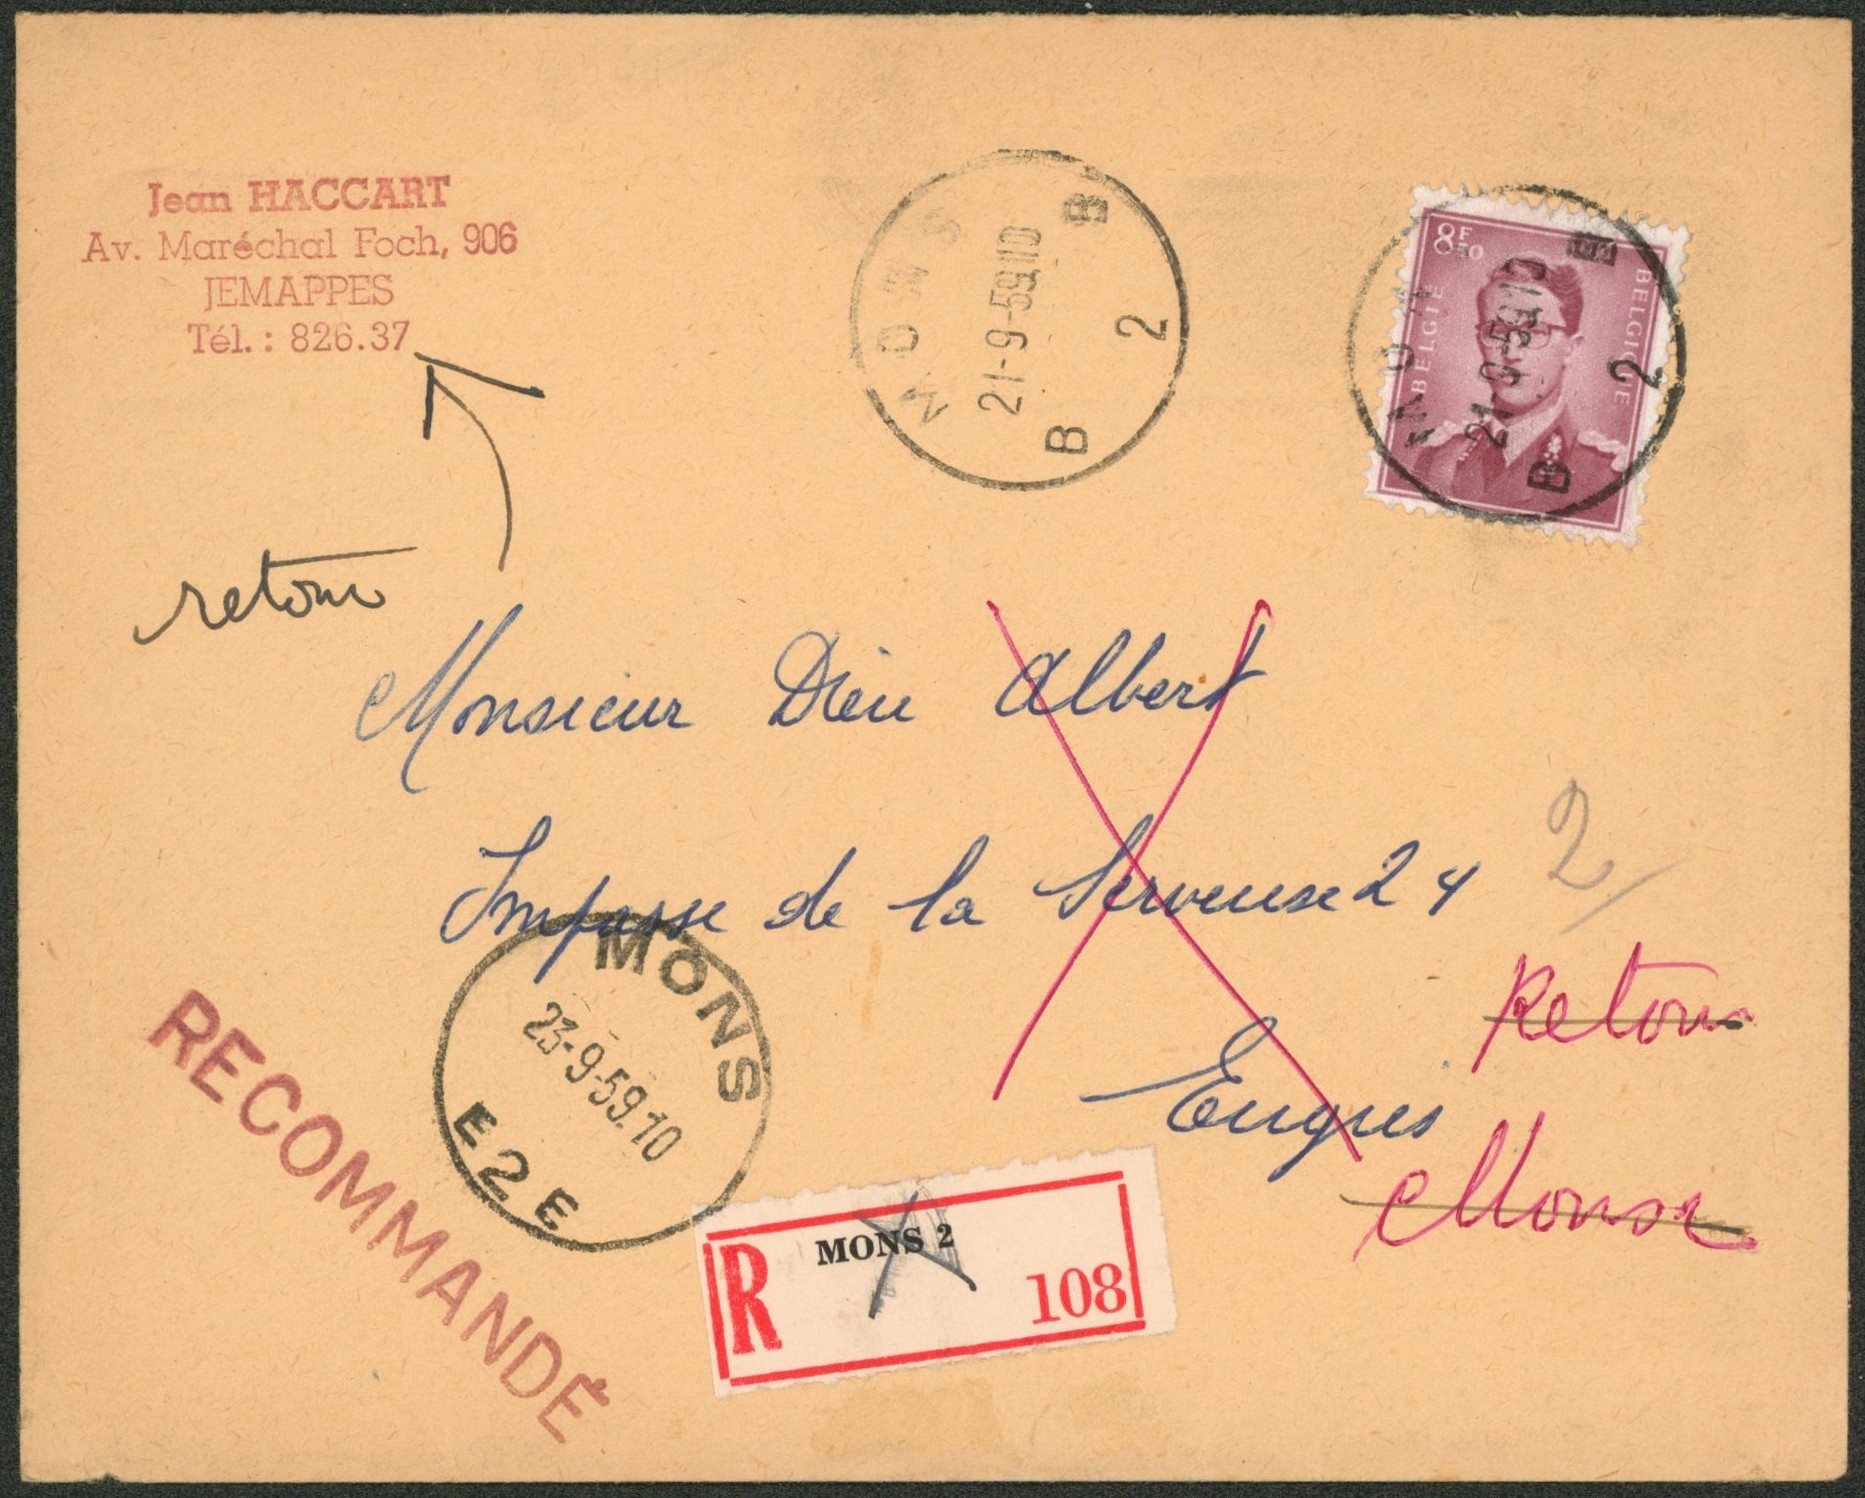 Jean HACCART
Av. Maréchal Foch, 906
JEMAPPES
Tél. : 826.37
MONS
21-9-59 10
B 2 B
8F50
BELGIE
BELGIQUE
MONS
21-9-59 10
B 2
retour
Monsieur Dieu Albert
Impasse de la Serveuse 24
2
Retour
MONS
23-9-59.10
E 2 E
RECOMMANDÉ
R
MONS 2
108